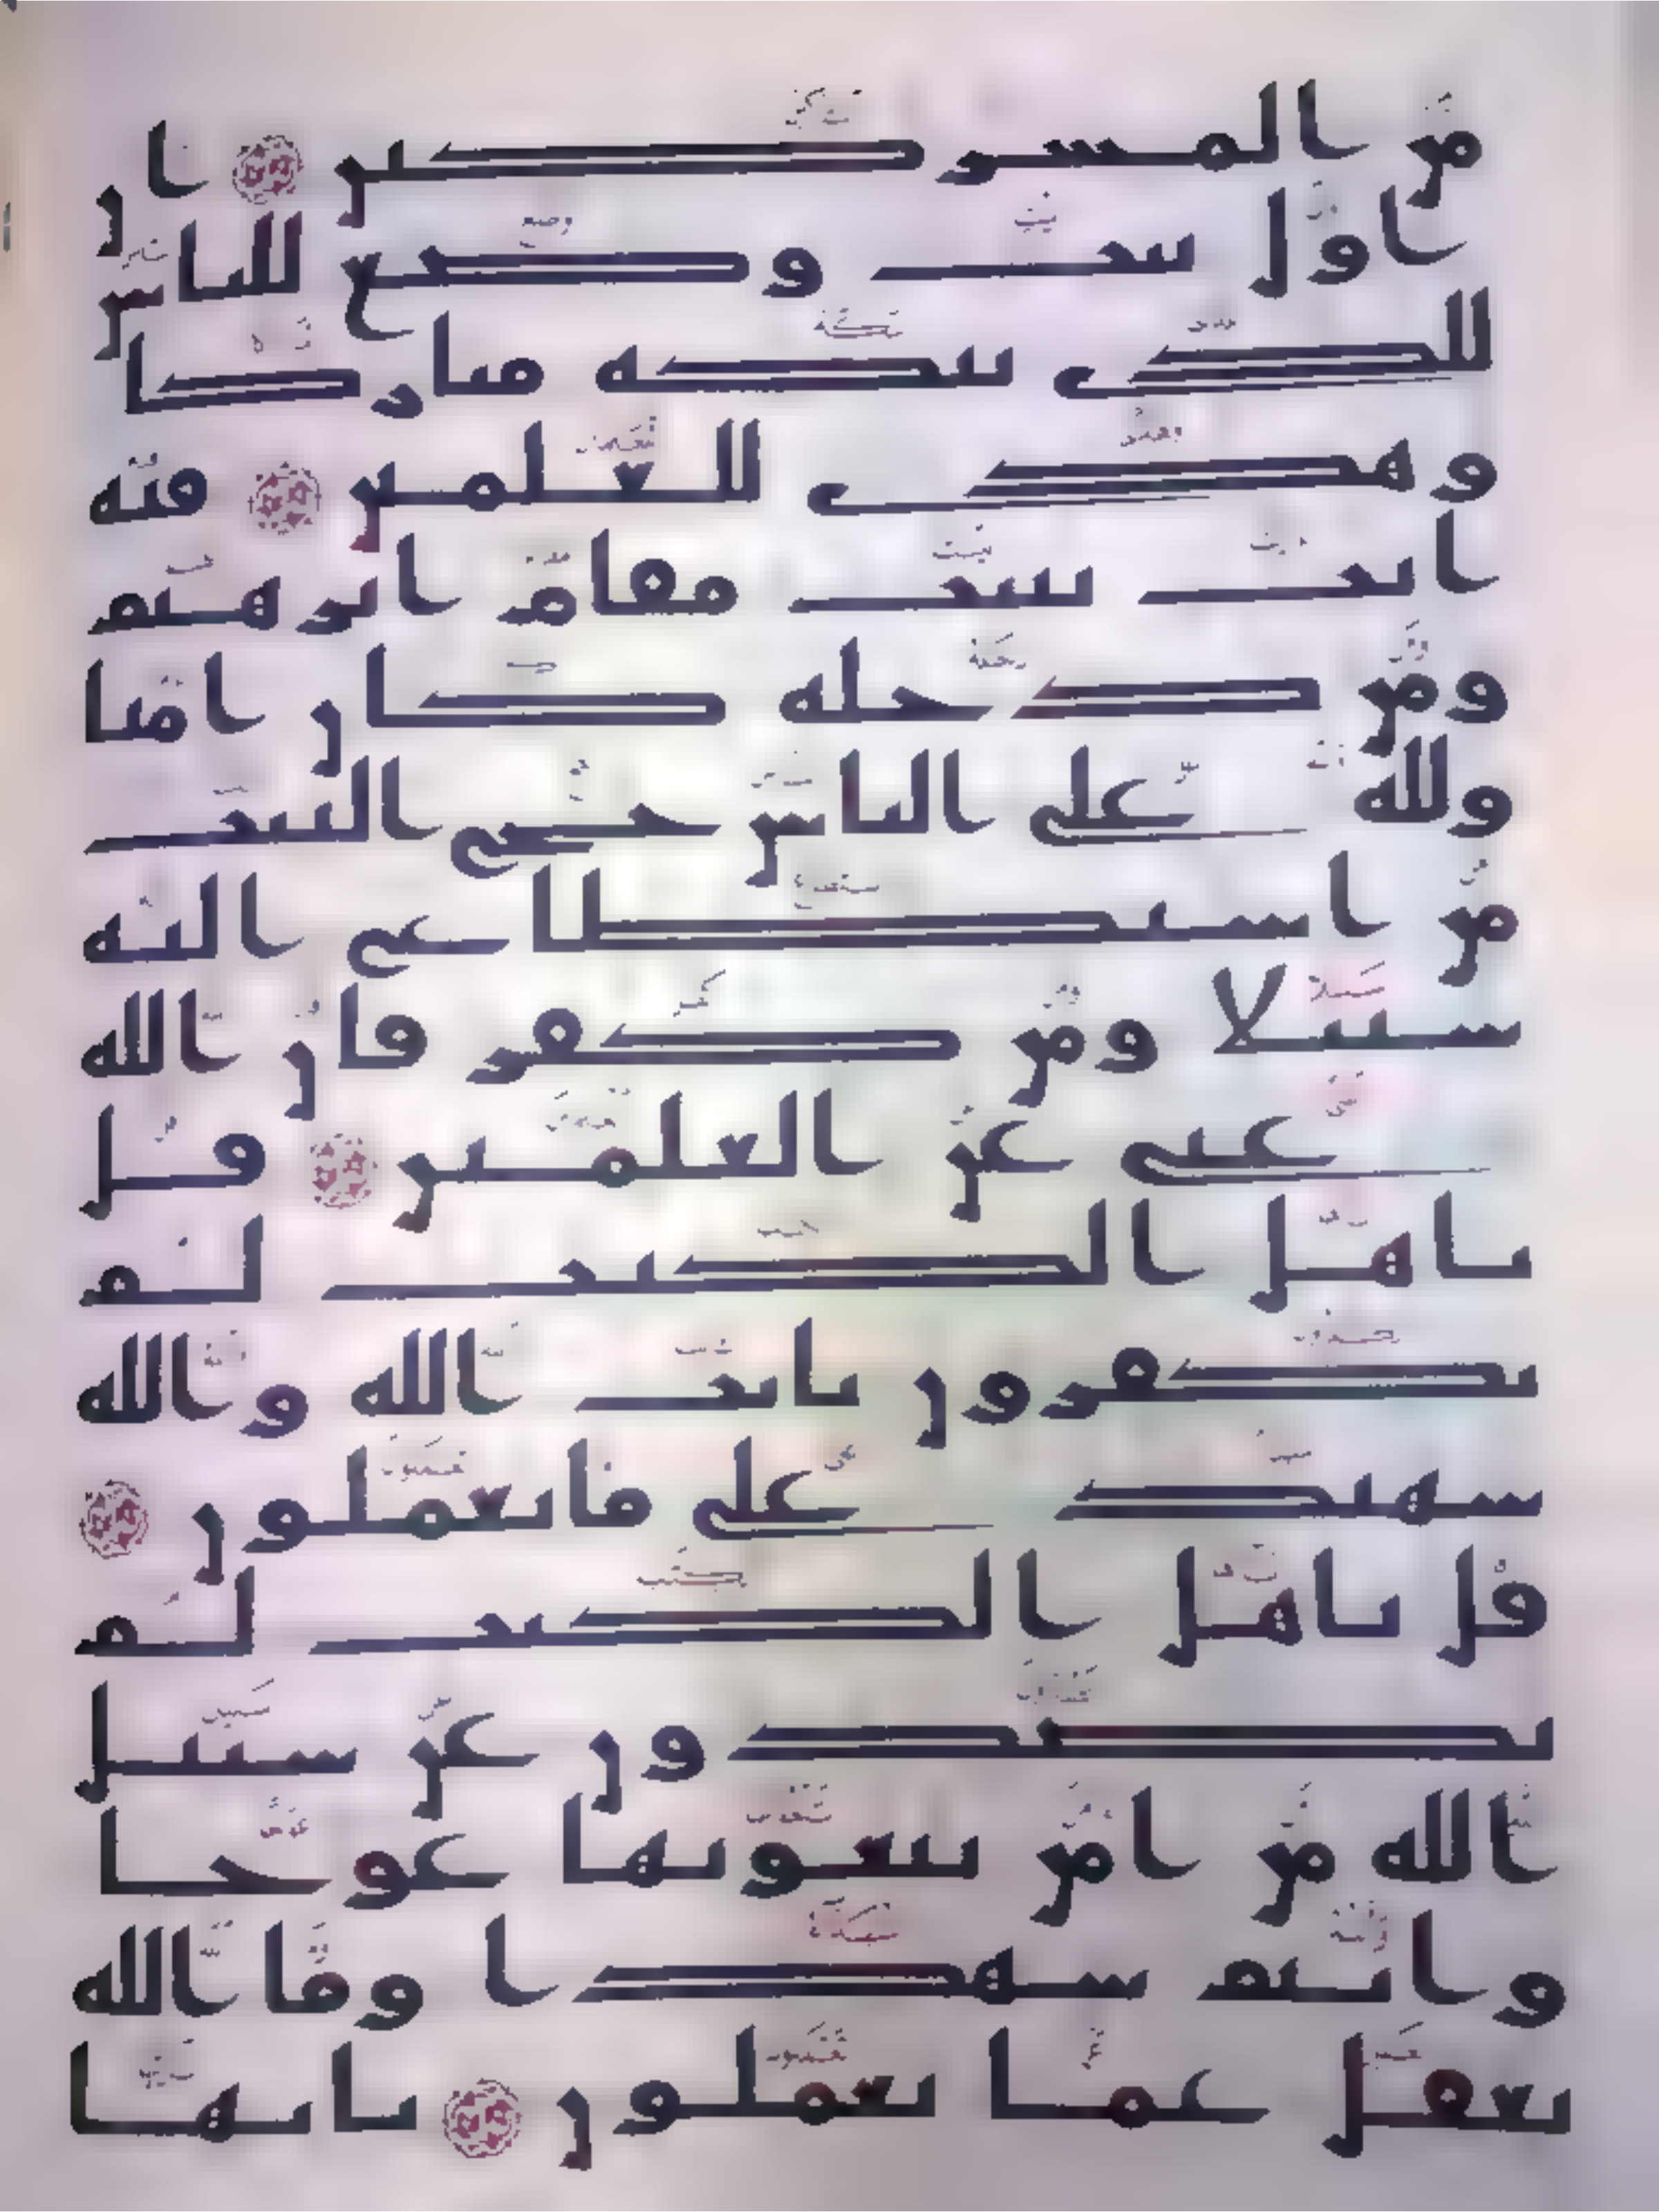 من المشركين ان
اول بيت وضع للناس
للذى ببكة مباركا
وهدى للعلمين فيه
ايت بينت مقام ابرهيم
ومن دخله كان امنا
ولله على الناس حج البيت
من استطاع اليه
سبيلا ومن كفر فان الله
غنى عن العلمين قل
ياهل الكتب لم
تكفرون بايت الله والله
شهيد على ما تعملون
قل ياهل الكتب لم
تصدون عن سبيل
الله من امن تبغونها عوجا
وانتم شهدا وما الله
بغفل عما تعملون يايها